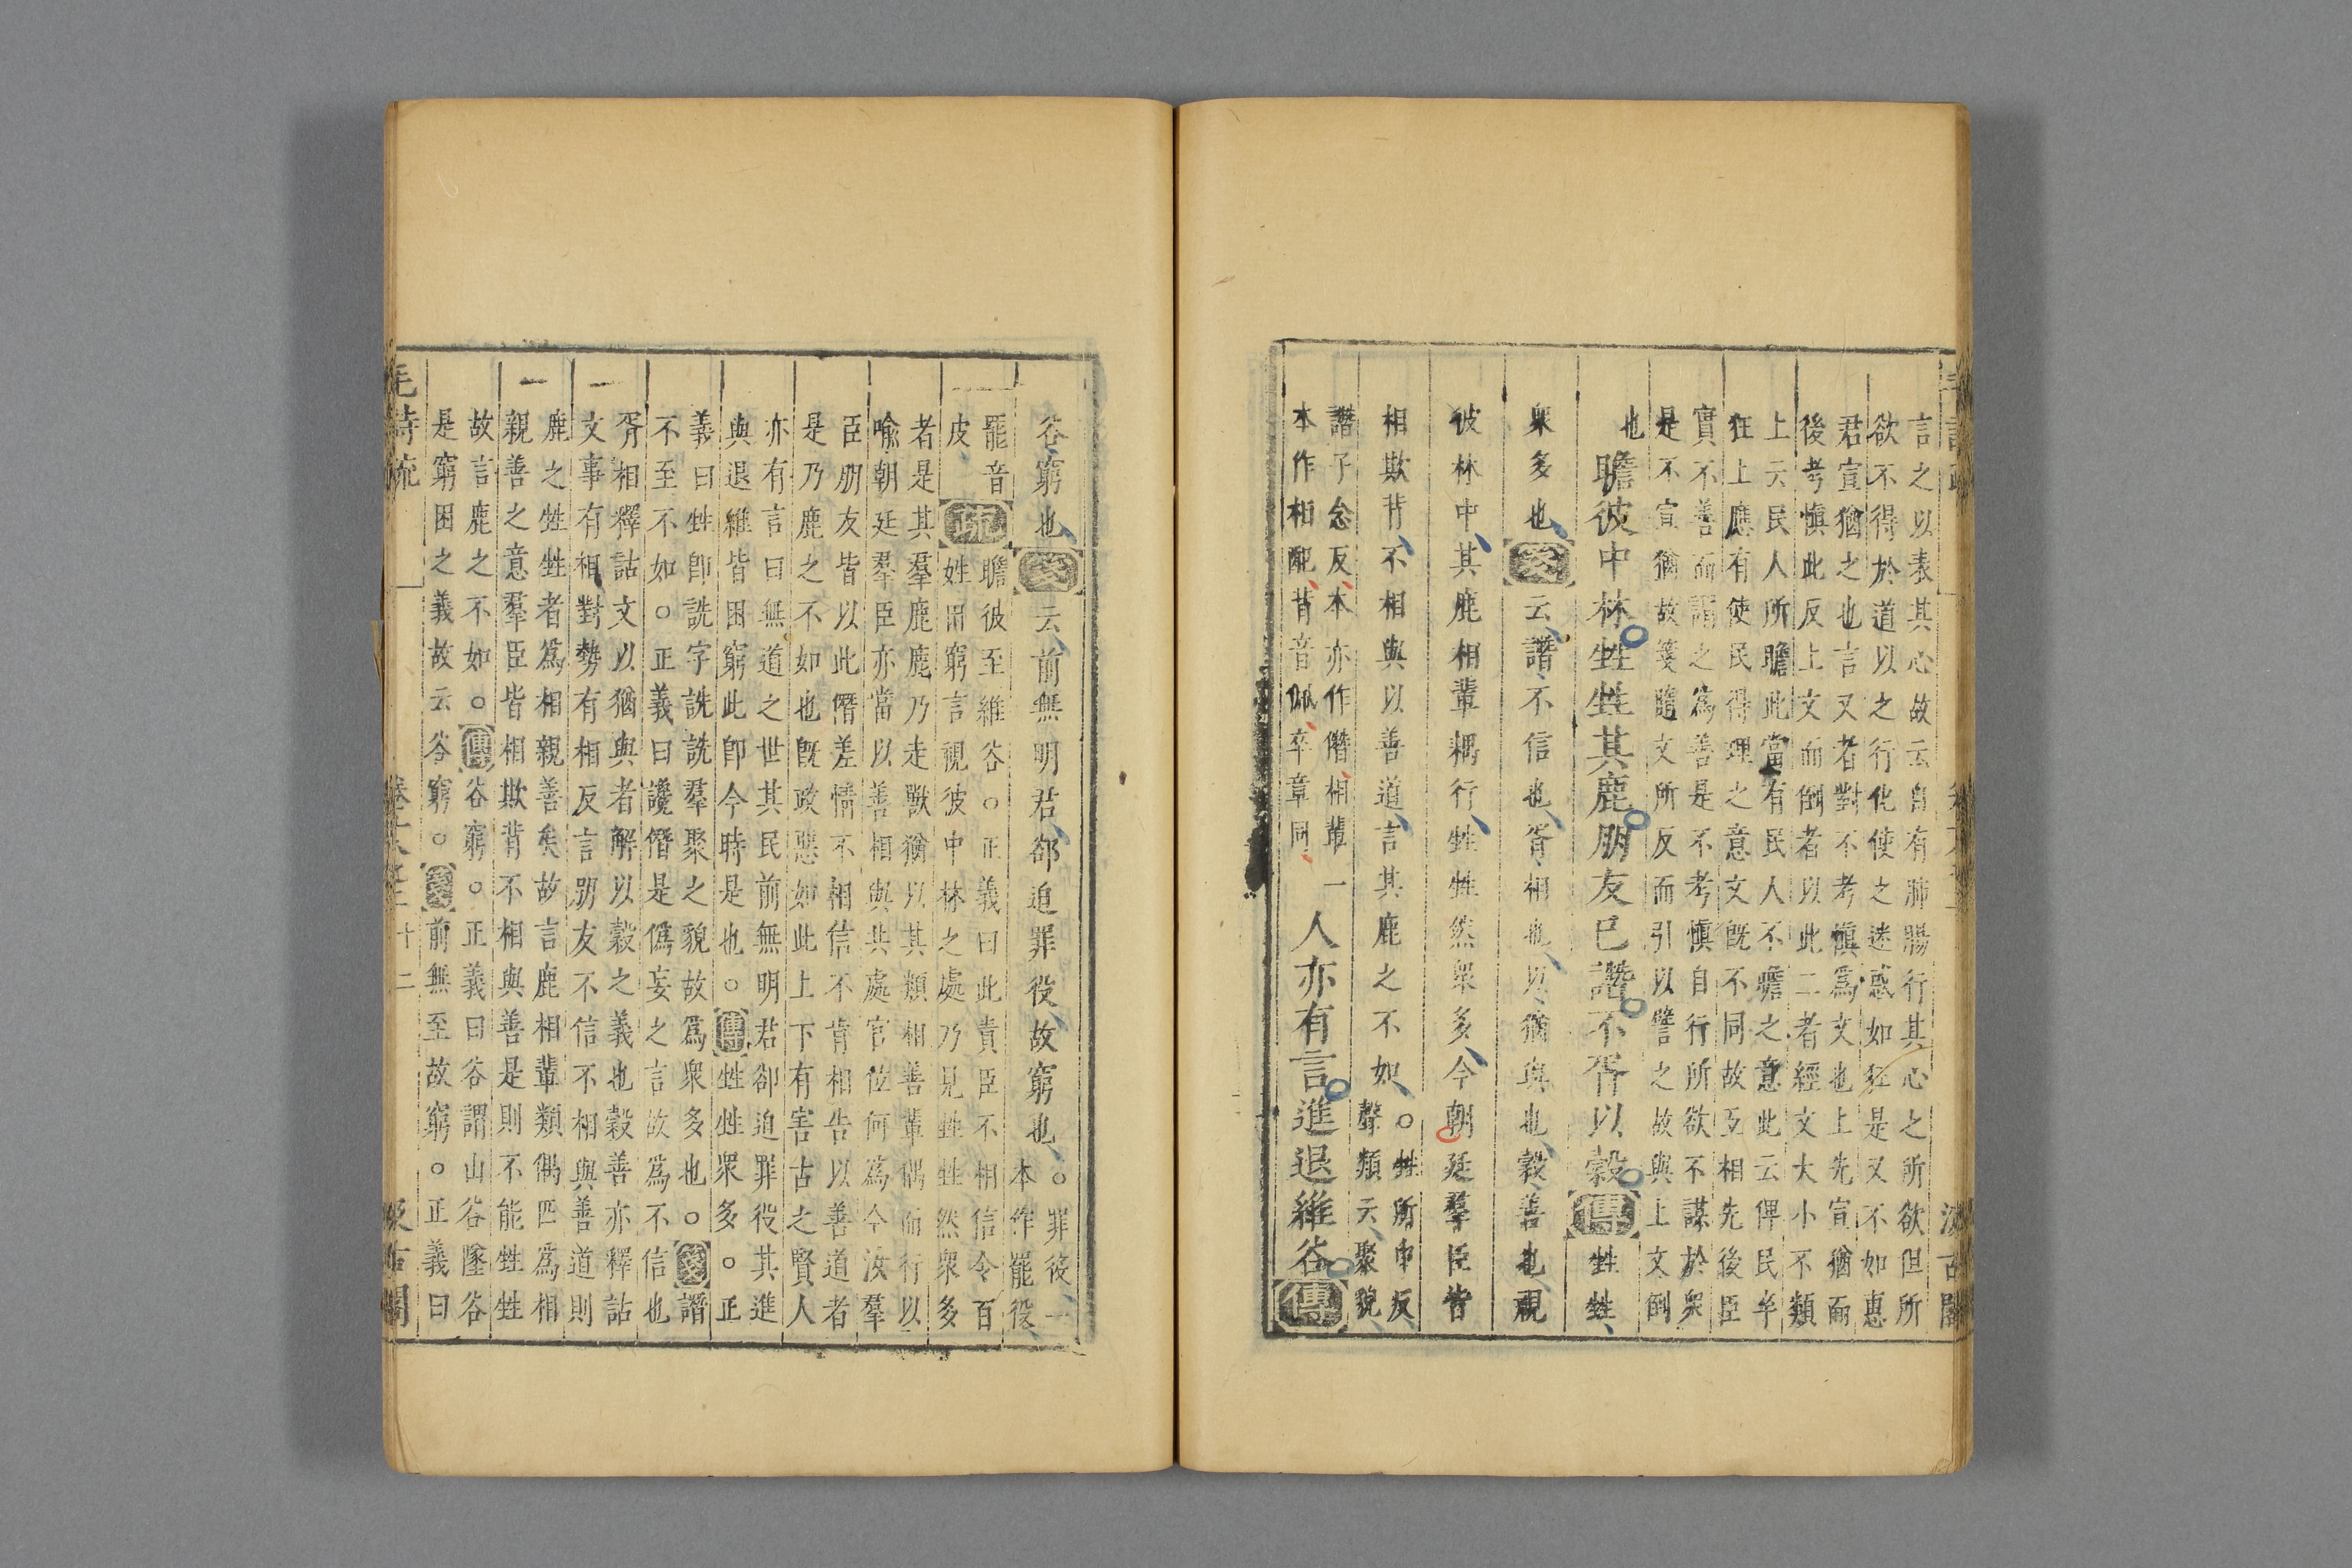 言之以表其心故云自有肺腸行其心之所欲但所
欲不得於道以之行化使之迷惑如狂是又不如惠
君宣猶之也言又者對不考慎為文也上先宣猶而
後考慎此反上文而倒者以此二者經文大小不類
上云民人所瞻此當有民人不瞻之意此云俾民卒
狂上應有使民得理之意文旣不同故互相先後臣
實不善而謂之為善是不考慎自行所欲不謀於衆
是不宣猶故箋隨文所反而引以譬之故與上文倒
也
瞻彼中林甡甡其鹿朋友已譖不胥以穀傳甡甡、
衆多也、箋云、譖、不信也、胥、相也、以、猶與也、穀、善也、視
彼林中、其鹿相輩耦行、甡甡然衆多、今朝廷羣臣皆
相欺背、不相與以善道、言其鹿之不如、○甡所申反
聲類云、聚貌、
譖子念反、本亦作僭、相輩一
本作相配、背音佩、卒章同、
人亦有言進退維谷傳
谷、窮也、箋云、前無明君、卻迫罪役、故窮也、○罪役、一
本作罷役、
罷音
皮、疏瞻彼至維谷○正義曰此責臣不相信令百
姓困窮言視彼中林之處乃見甡甡然衆多
者是其羣鹿鹿乃走獸猶以其類相善輩偶而行以
喻朝廷羣臣亦當以善相與共處官位何為今汝羣
臣朋友皆以此僭差情不相信不肯相告以善道者
是乃鹿之不如也旣政惡如此上下有害古之賢人
亦有言曰無道之世其民前無明君卻迫罪役其進
與退維皆困窮此卽今時是也○傳甡甡衆多○正
義曰甡卽詵字詵詵羣聚之貌故為衆多也○箋譖
不至不如○正義曰讒僭是僞妄之言故為不信也
胥相釋詁文以猶與者解以穀之義也穀善亦釋詁
文事有相對勢有相反言朋友不信不相與善道則
鹿之甡甡者為相親善矣故言鹿相輩類偶匹為相
親善之意羣臣皆相欺背不相與善是則不能甡甡
故言鹿之不如○傳谷窮○正義曰谷謂山谷墜谷
是窮困之義故云谷窮○箋前無至故窮○正義曰
毛詩疏
卷
十二
汲古閣